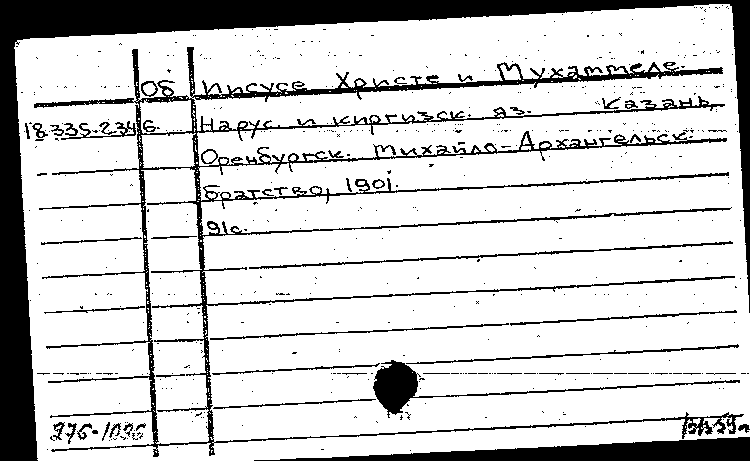 Об Иисусе Христе и Мухаммеде.
18.335.2.346. На рус. и киргизск. яз. Казань,
Оренбургск. Михайло-Архангельск.
братство, 1901.
91с.
276-1096